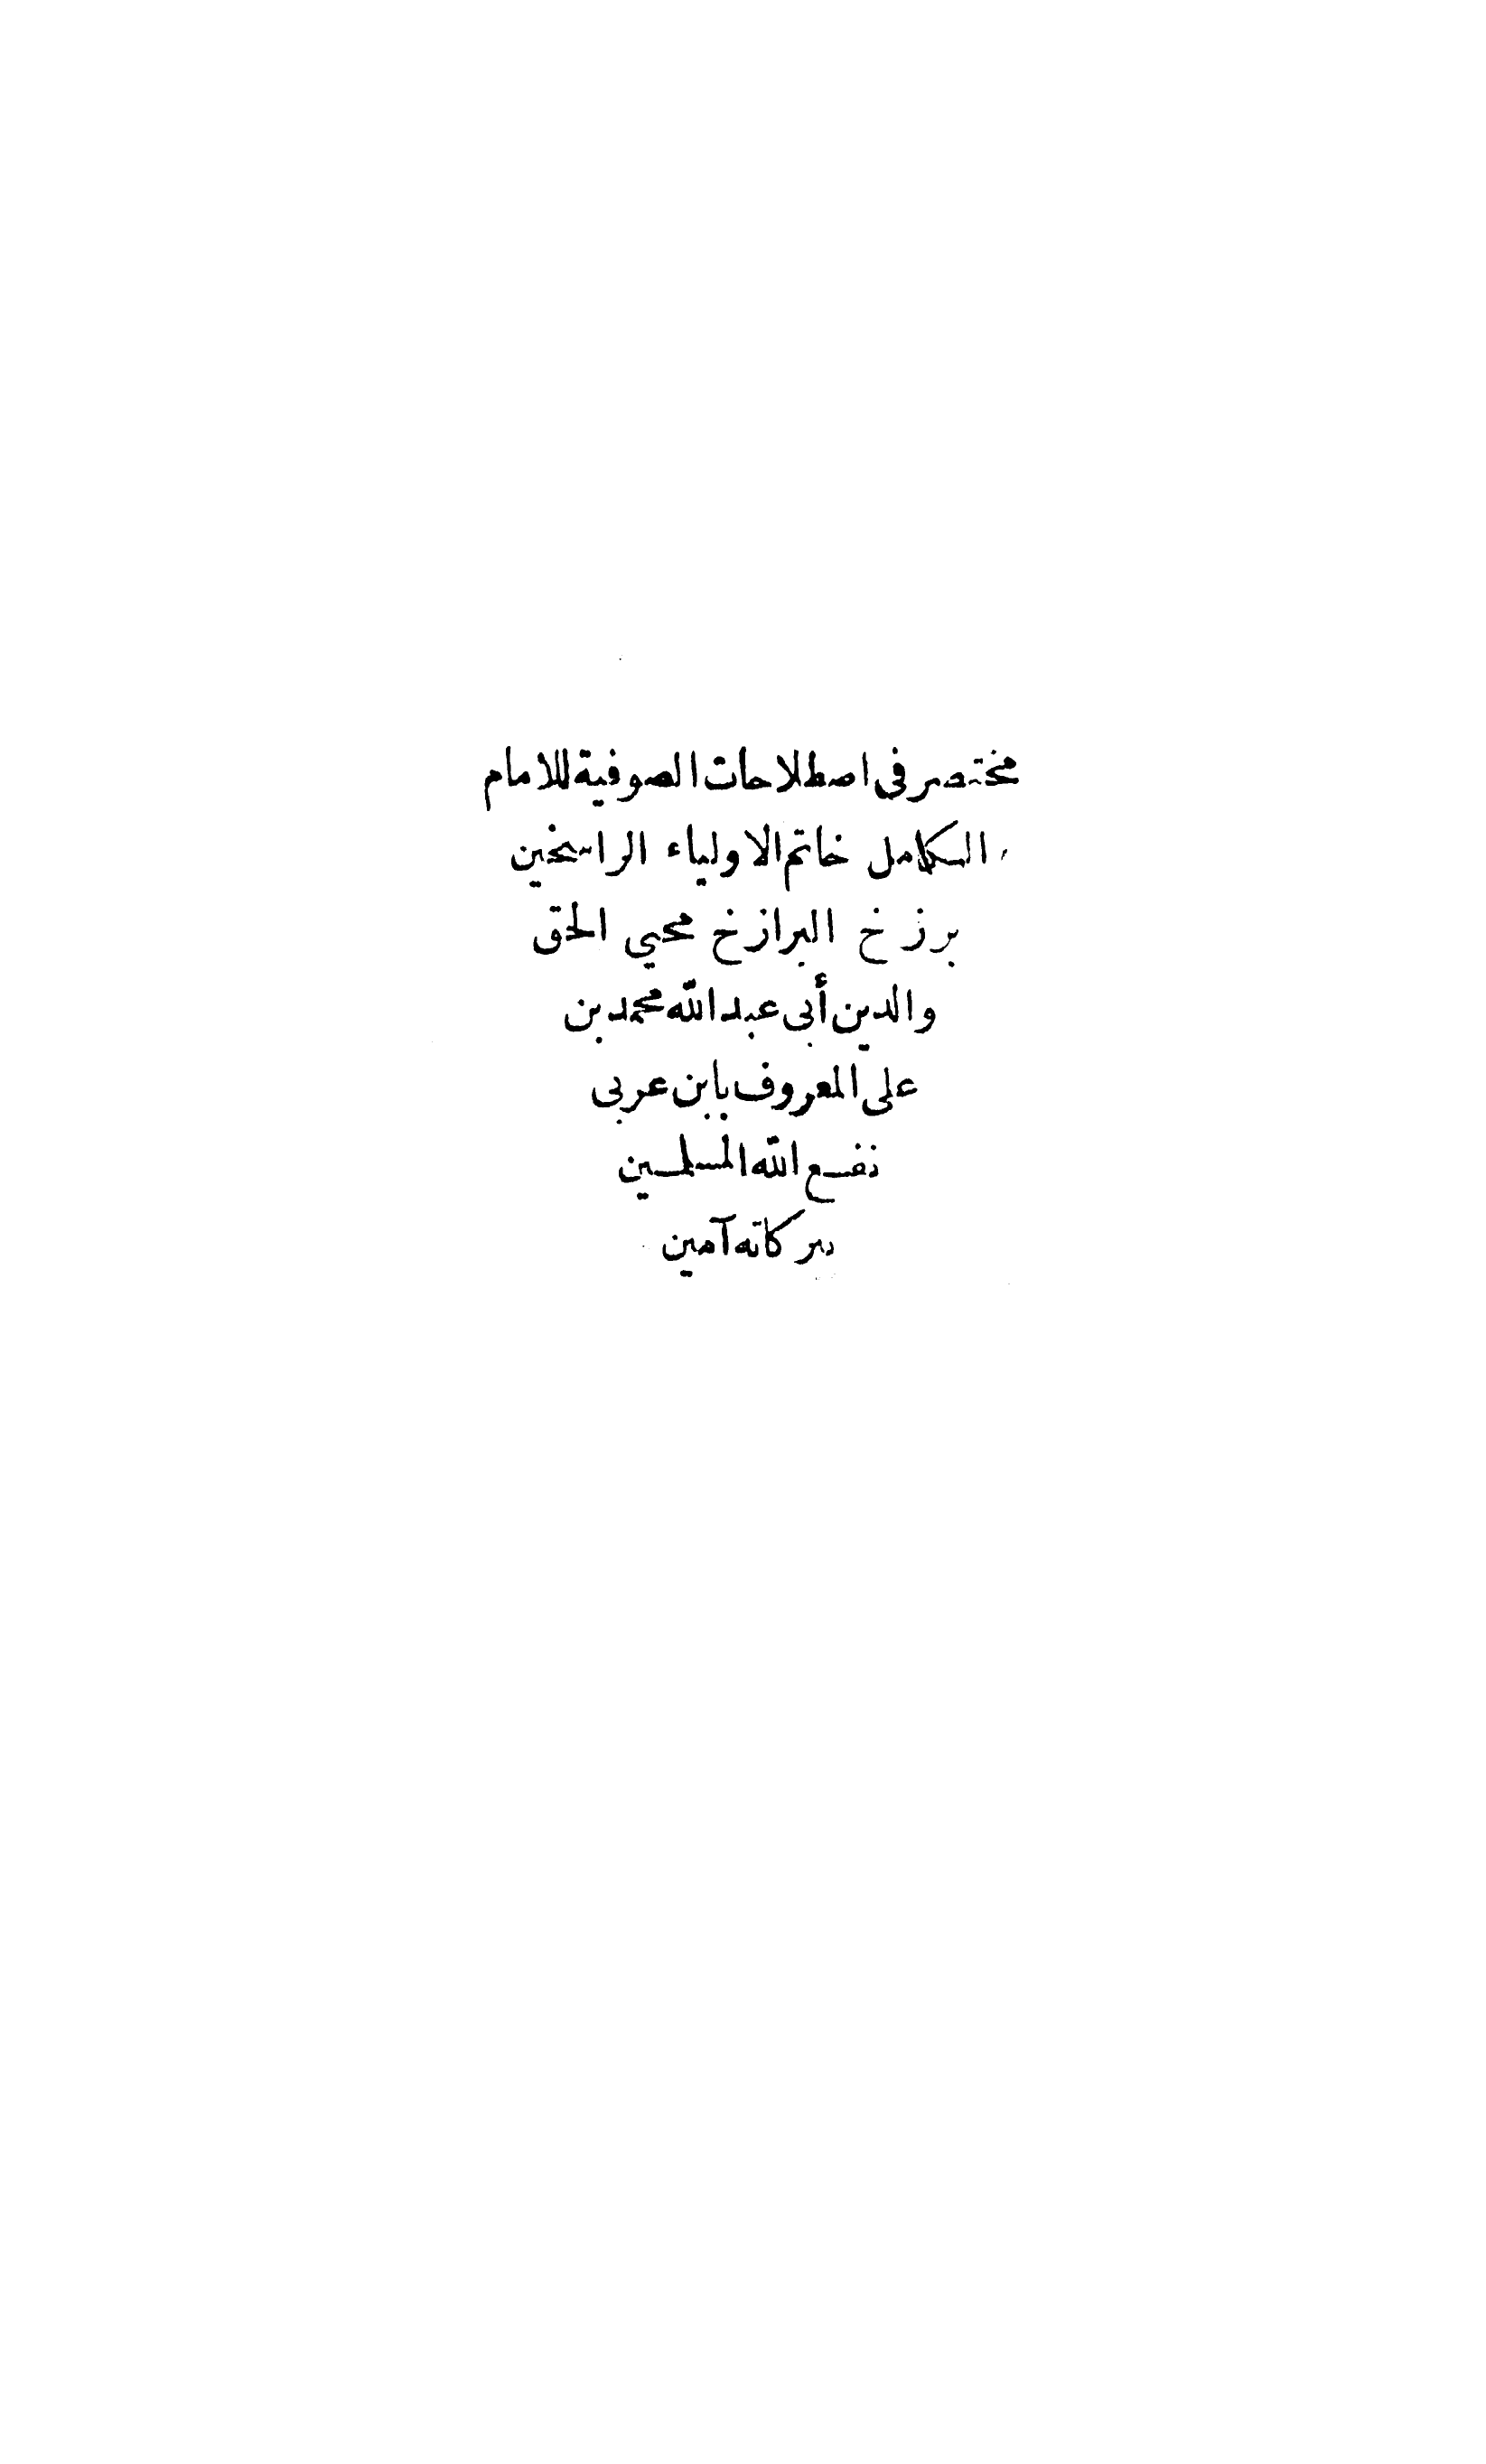 مختصر فى اصطلاحات الصوفية للامام
الكامل خاتم الاولياء الراسخين
برزخ البرازخ محيي الحق
والدين أبى عبد الله محمد بن
على المعروف بابن عربى
نفع الله المسلمين
ببركاته آمين